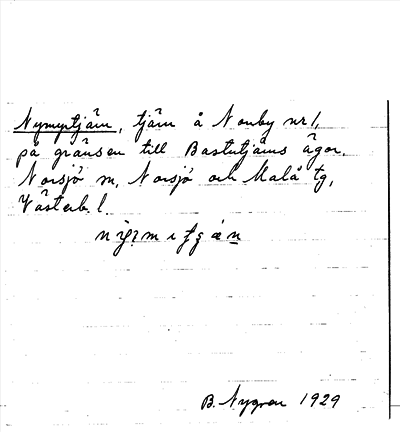 Nymyrtjärn, tjärn å Norrby nr 1,
på gränsen till Bastutjärns ägor.
Norsjö sn, Norsjö och Malå tg,
Västerb. l.
B. Nygren 1929